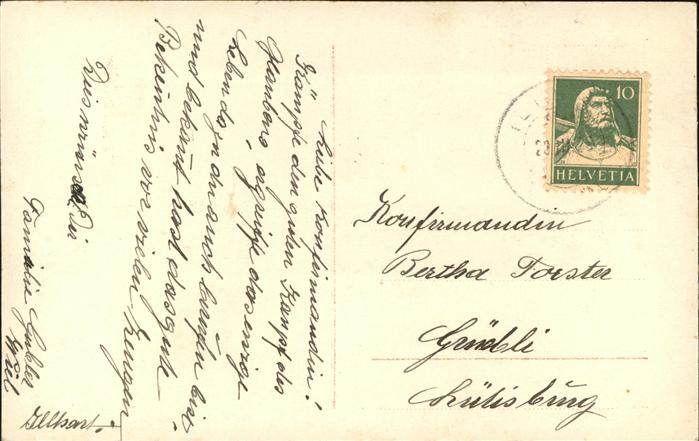 Liebe Konfirmandin!
Kämpfe den guten Kampf des
Glaubens, ergreife das ewige
Leben dazu du auch berufen bist
und bekant hast das gute
Bekentnis vor vielen Zeugen
Dies wünscht Dir
Familie
Wil
Konfirmandin
Bertha Forster
Gründli
Lütisburg
10
HELVETIA